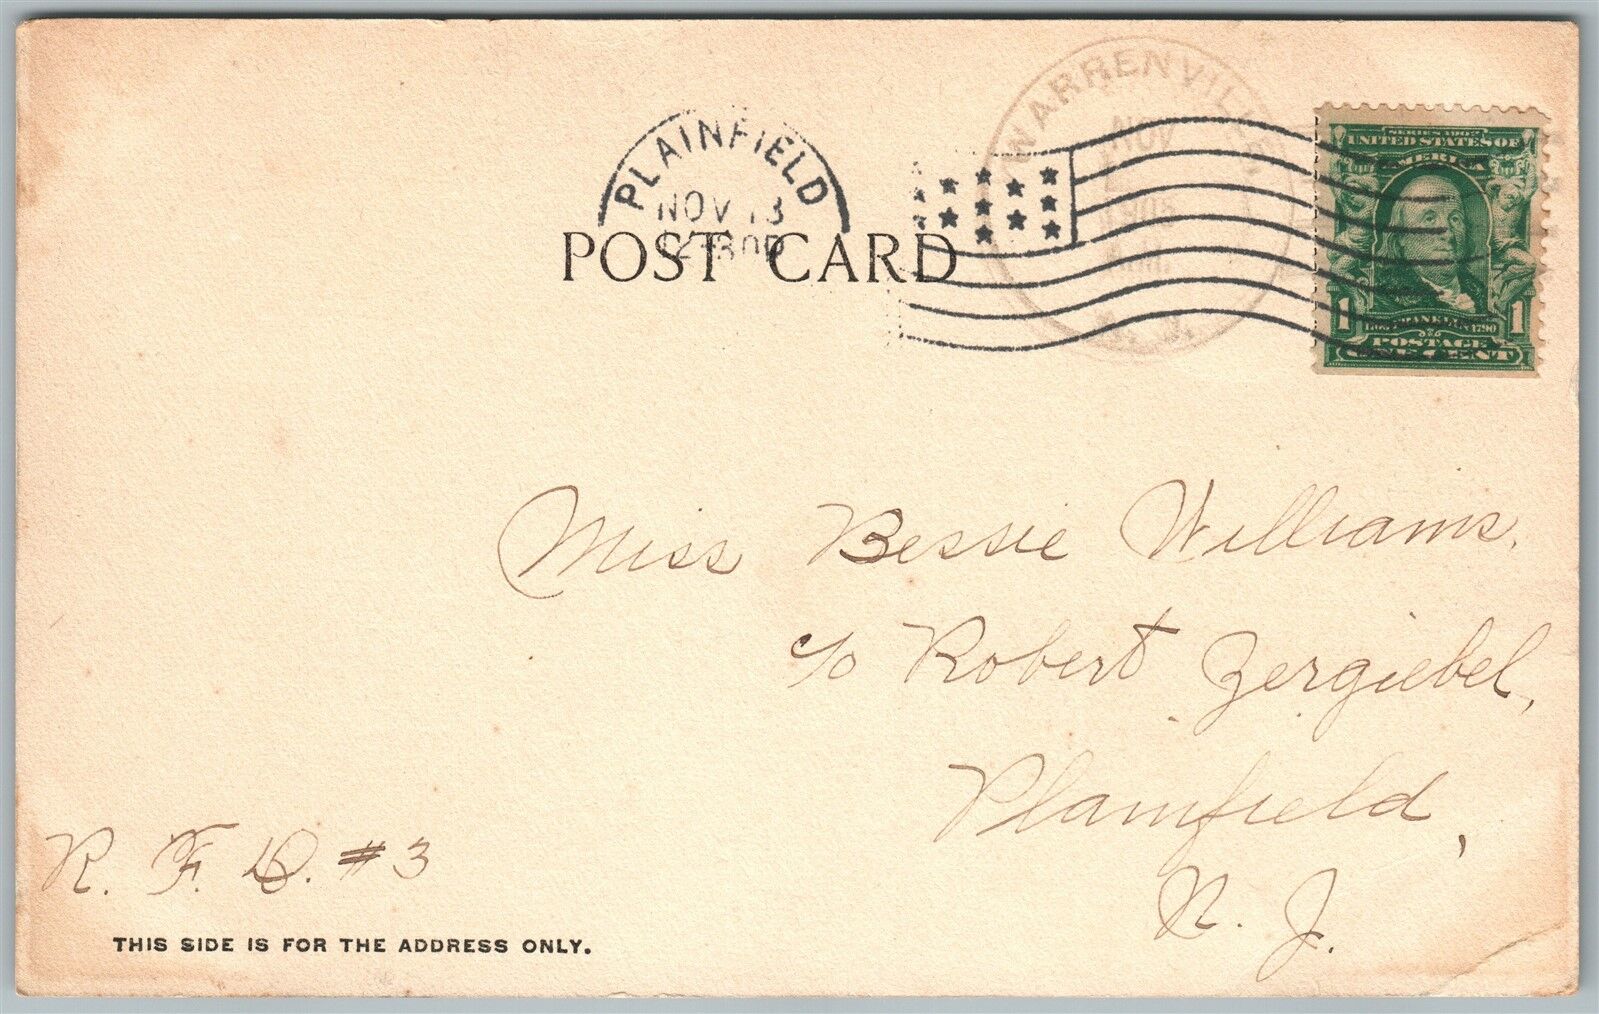 WARRENVILLE,
NOV
1906
A.M.
N. J.
PLAINFIELD
NOV 13
POST CARD
SERIES 1902
UNITED STATES OF
AMERICA
1 1706 FRANKLIN 1790 1
POSTAGE
ONE CENT
Miss Bessie Williams,
c/o Robert Zergiebel,
Plainfield,
N. J.
R. F. D. #3
THIS SIDE IS FOR THE ADDRESS ONLY.